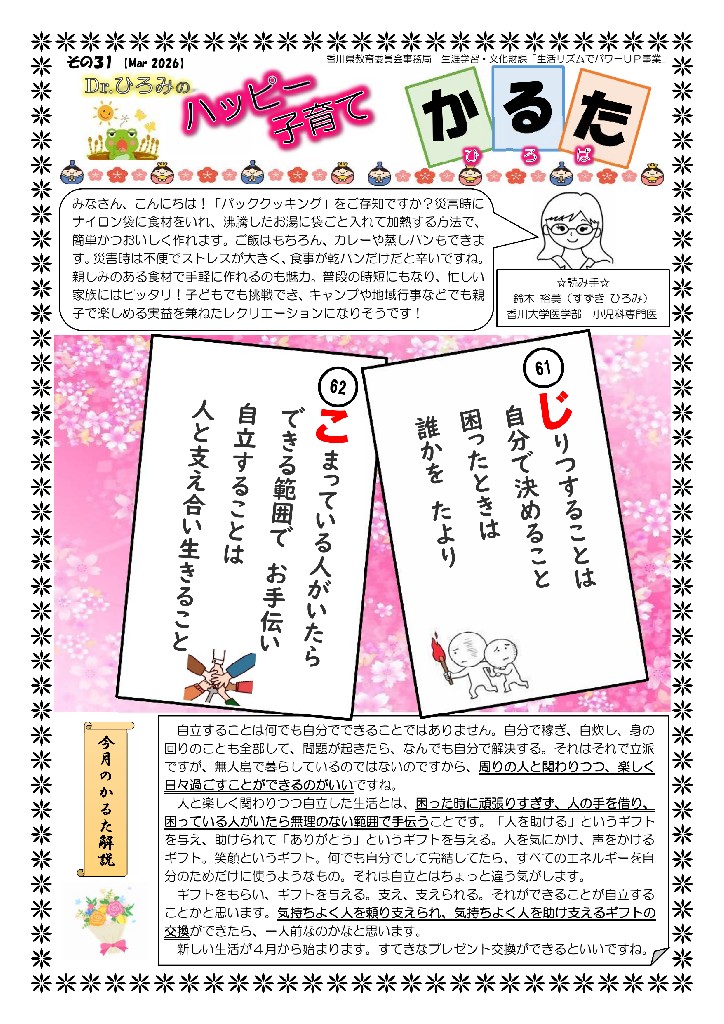 その31 [Mar 2026]
香川県教育委員会事務局 生涯学習・文化財課「生活リズムでパワーUP事業
Dr.ひろみの
ハッピー
子育て
かるた
ひろば
みなさん、こんにちは！「パッククッキング」をご存知ですか？災害時に
ナイロン袋に食材をいれ、沸騰したお湯に袋ごと入れて加熱する方法で、
簡単かつおいしく作れます。ご飯はもちろん、カレーや蒸しパンもできま
す。災害時は不便でストレスが大きく、食事が乾パンだけだと辛いですね。
親しみのある食材で手軽に作れるのも魅力。普段の時短にもなり、忙しい
家族にはピッタリ！子どもでも挑戦でき、キャンプや地域行事などでも親
子で楽しめる実益を兼ねたレクリエーションになりそうです！
☆読み手☆
鈴木 裕美（すずき ひろみ）
香川大学医学部 小児科専門医
61
じりつすることは
自分で決めること
困ったときは
誰かを たより
62
こまっている人がいたら
できる範囲で お手伝い
自立することは
人と支え合い生きること
今月のかるた解説
自立することは何でも自分でできることではありません。自分で稼ぎ、自炊し、身の
回りのことも全部して、問題が起きたら、なんでも自分で解決する。それはそれで立派
ですが、無人島で暮らしているのではないのですから、周りの人と関わりつつ、楽しく
日々過ごすことができるのがいいですね。
人と楽しく関わりつつ自立した生活とは、困った時に頑張りすぎず、人の手を借り、
困っている人がいたら無理のない範囲で手伝うことです。「人を助ける」というギフト
を与え、助けられて「ありがとう」というギフトを与える。人を気にかけ、声をかける
ギフト。笑顔というギフト。何でも自分でして完結してたら、すべてのエネルギーを自
分のためだけに使うようなもの。それは自立とはちょっと違う気がします。
ギフトをもらい、ギフトを与える。支え、支えられる。それができることが自立する
ことかと思います。気持ちよく人を頼り支えられ、気持ちよく人を助け支えるギフトの
交換ができたら、一人前なのかなと思います。
新しい生活が4月から始まります。すてきなプレゼント交換ができるといいですね。